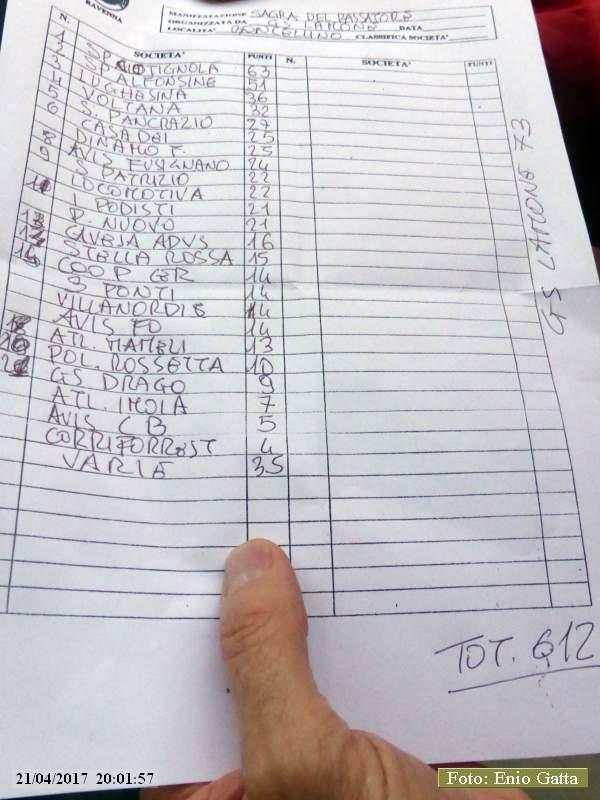 RAVENNA
MANIFESTAZIONE SAGRA DEL PASSATORE
ORGANIZZATA DA GS LAMONE DATA
LOCALITA' CLASSIFICA SOCIETA'
N. SOCIETA' PUNTI N. SOCIETA' PUNTI
1 S.P. COTIGNOLA 63
2 ALFONSINE 51
3 LUGHESINA 36
4 VOLTANA 32
5 S. PANCRAZIO 27
6 CASA DEI 25
DINAMO F. 25
8 AVIS FUSIGNANO 24
9 S. PATRIZIO 22
LOCOMOTIVA 22
10 I PODISTI 21
P. NUOVO 21
GAVEJA ADVS 16
STELLA ROSSA 15
14 COOP CER 14
3 PONTI 14
VILLANORDIE 14
AVIS FO 14
ATL. MAMELI 13
POL. ROSSETTA 10
GS DRAGO 9
ATL. IMOLA 7
AVIS CB 5
CORRIFORREST 4
VARIE 35
GS LAMONE 73
TOT. 612
21/04/2017 20:01:57
Foto: Enio Gatta